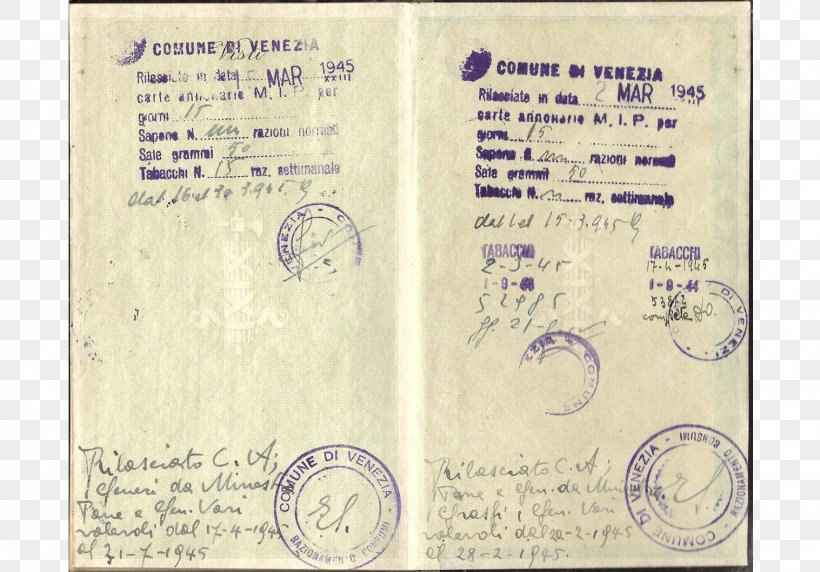 COMUNE DI VENEZIA
Visto
Rilasciate in data MAR 1945
XXIII
carte annonarie M. I. P. per
giorni 15
Sapone N. un razioni normali
Sale grammi 50
Tabacchi N. 15 raz. settimanale
dal 16 al 30 3.945
VENEZIA - COMUNE
Rilasciato C. A;
generi da Minestra
Pane e Gen. Vari
valevoli dal 17-4-1945
al 31-7-1945
COMUNE DI VENEZIA - RAZIONAMENTO CONSUMI
COMUNE DI VENEZIA
Rilasciate in data 2 MAR 1945
XXIII
carte annonarie M. I. P. per
giorni 15
Sapone N. un razioni normali
Sale grammi 50
Tabacchi N. raz. settimanale
dal 1 al 15-3-945
TABACCHI
2-3-45
52985
TABACCHI
17-4-1945
1-8-44
completa
DI VENEZI
EZIA - COMUNE
Rilasciato C. A;
Pane e Gen. da Min
Grassi, Gen. Vari
valevoli dal 20-2-1945
al 28-2-1945.
COMUNE DI VENEZIA - RAZIONAMENTO CONSUMI